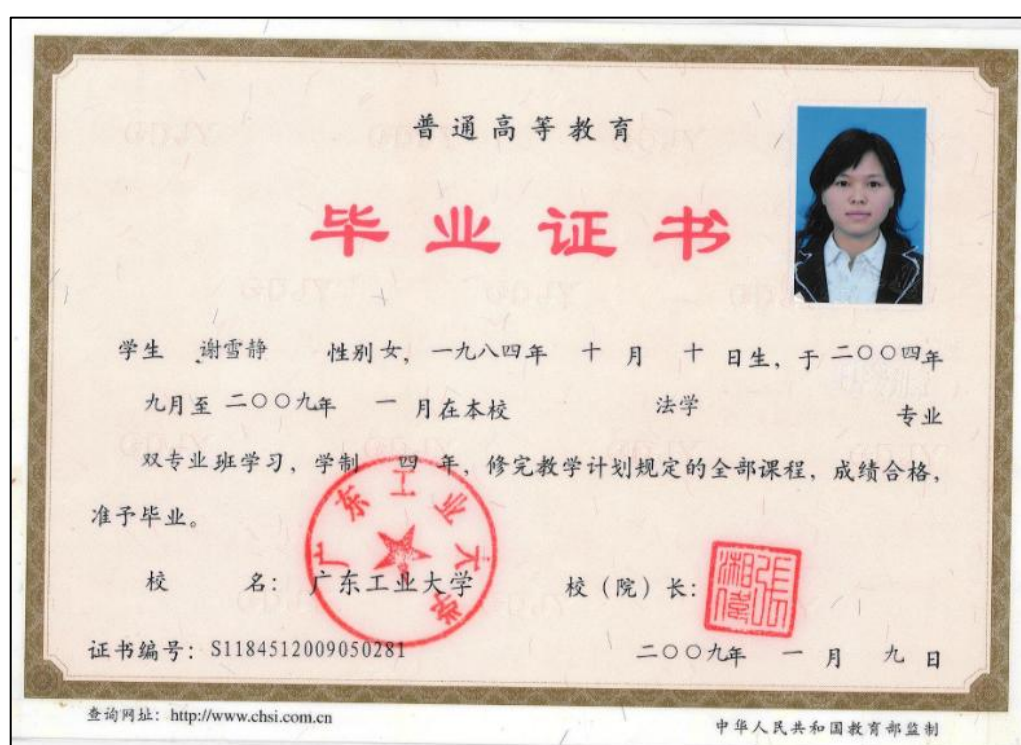 普通高等教育
毕业证书
学生 谢雪静 性别女，一九八四年 十 月 十 日生，于二〇〇四年
九月至二〇〇九年 一 月在本校 法学 专业
双专业班学习，学制 四 年，修完教学计划规定的全部课程，成绩合格，
准予毕业。
广东工业大学
校 名：广东工业大学 校（院）长：
证书编号：S1184512009050281 二〇〇九年 一 月 九 日
查询网址：http://www.chsi.com.cn 中华人民共和国教育部监制